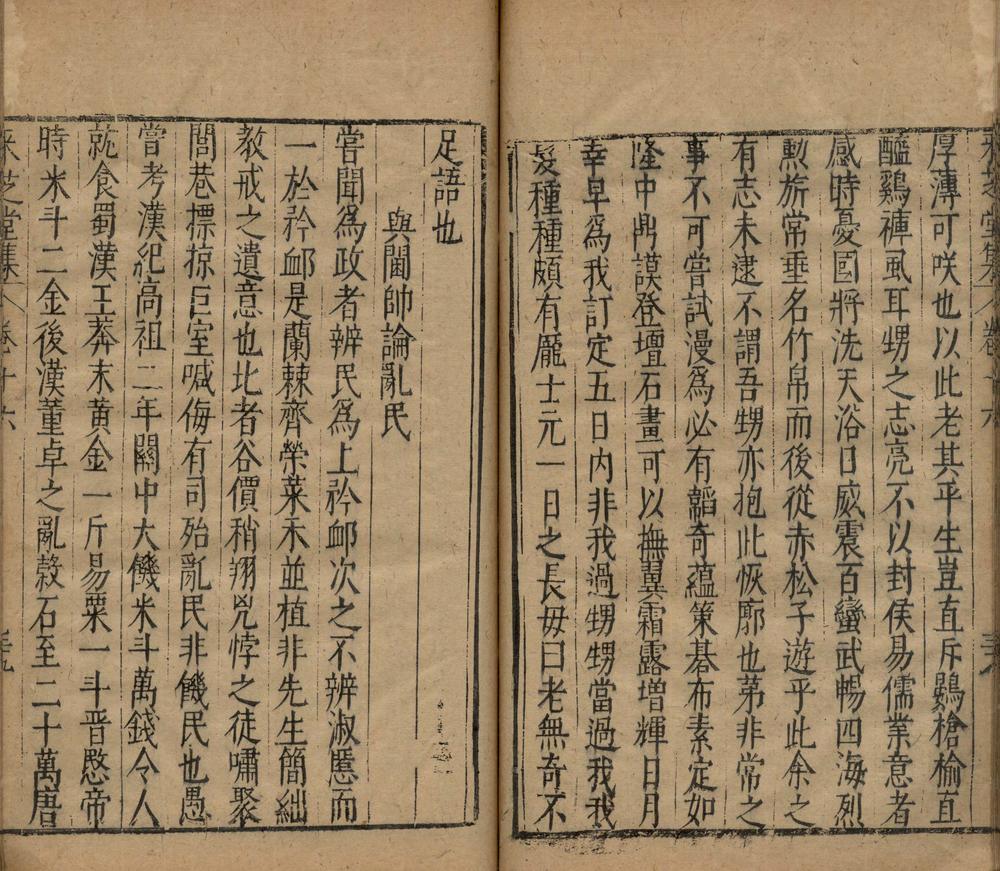 厚薄可咲也以此老其平生豈直斥鷃槍榆直
醯鷄褌虱耳甥之志亮不以封侯易儒業意者
感時憂國將洗天浴日威震百蠻武暢四海烈
勲旂常垂名竹帛而後從赤松子遊乎此余之
有志未逮不謂吾甥亦抱此恢廓也苐非常之
事不可嘗試漫爲必有韜奇蘊策碁布素定如
隆中鼎謨登壇石畫可以撫翼霜露增輝日月
幸早爲我訂定五日内非我過甥甥當過我我
髮種種頗有龎士元一日之長毋曰老無奇不
足語也
與閫帥論亂民
嘗聞爲政者辨民爲上矜䘏次之不辨淑慝而
一於矜䘏是蘭棘齊榮菜禾並植非先生簡絀
教戒之遺意也比者谷價稍翔兇悖之徒嘯聚
閭巷摽掠巨室喊侮有司殆亂民非饑民也愚
嘗考漢紀高祖二年關中大饑米斗萬錢令人
就食蜀漢王莽末黄金一斤易粟一斗晋愍帝
時米斗二金後漢董卓之亂榖石至二十萬唐
采芝堂集 卷十六